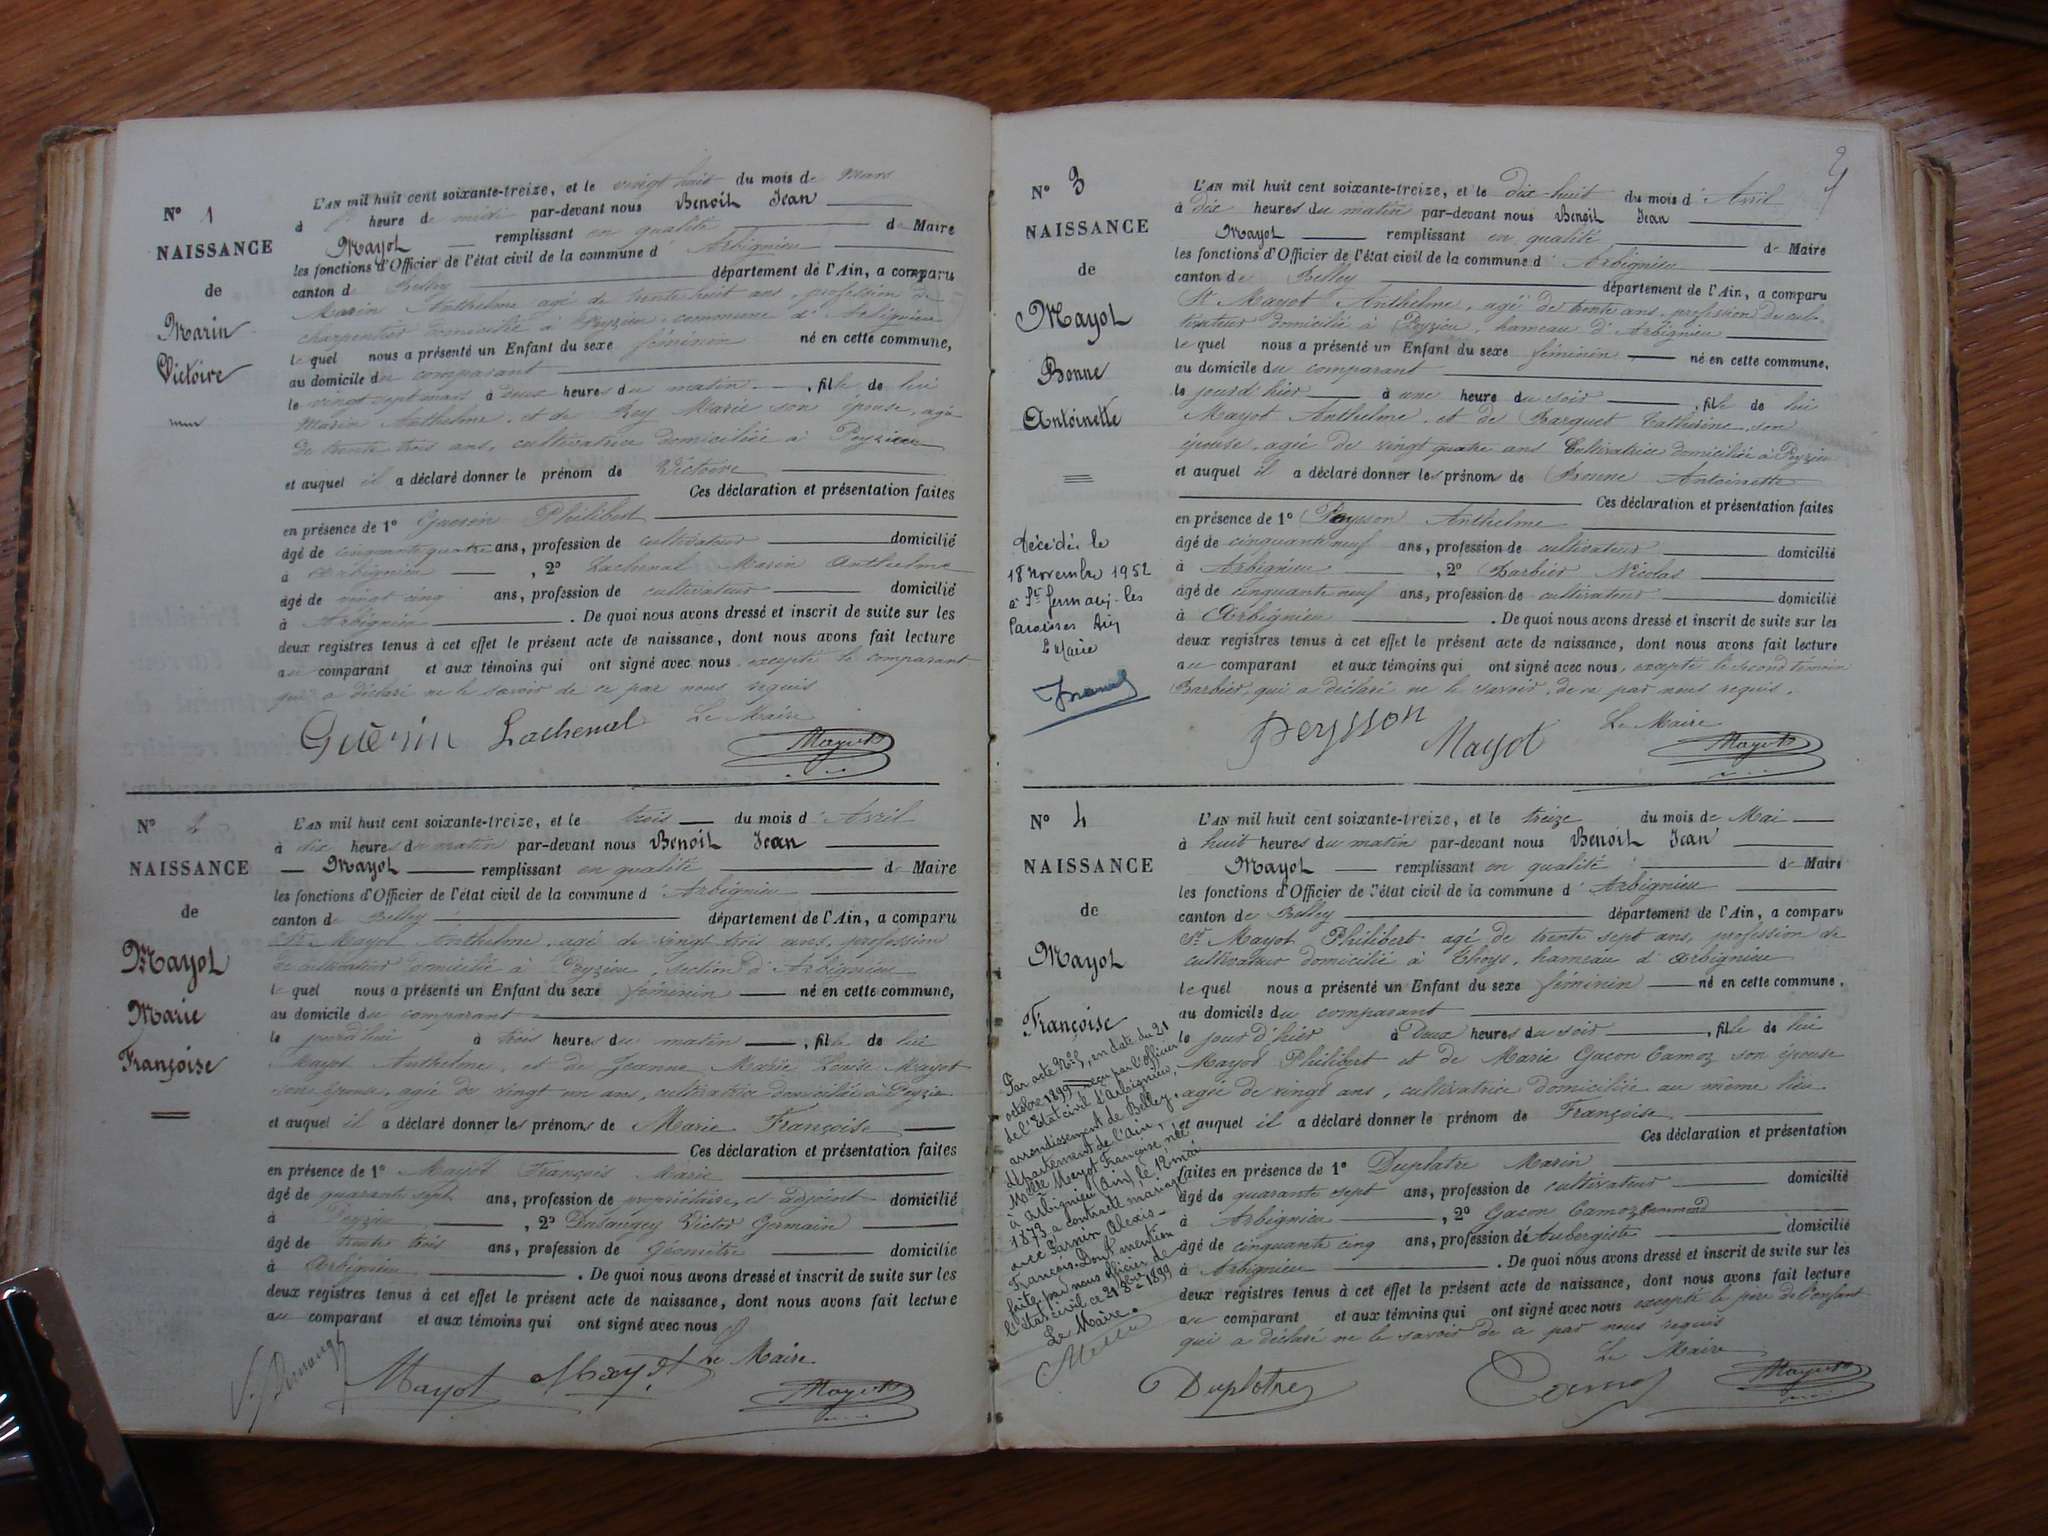 N° 1
NAISSANCE
de
Marin
Victoire
L'AN mil huit cent soixante-treize, et le vingt huit du mois de Mars
à heure de midi par-devant nous Benoît Jean
Mayot remplissant en qualité de Maire
les fonctions d'Officier de l'état civil de la commune d'Arbignieu
canton de Belley département de l'Ain, a comparu
Marin Anthelme agé de trente huit ans, profession de
charpentier domicilié à Peyzieu, commune d'Arbignieu
lequel nous a présenté un Enfant du sexe féminin né en cette commune,
au domicile du comparant
le vingt sept mars à deux heures du matin, fille de lui
Marin Anthelme, et de Rey Marie son épouse, agée
de trente trois ans, cultivatrice domiciliée à Peyzieu
et auquel il a déclaré donner le prénom de Victoire
Ces déclaration et présentation faites
en présence de 1° Guerin Philibert
âgé de cinquante quatre ans, profession de cultivateur domicilié
à Arbignieu, 2° Lachenal Marin Anthelme
âgé de vingt cinq ans, profession de cultivateur domicilié
à Arbignieu. De quoi nous avons dressé et inscrit de suite sur les
deux registres tenus à cet effet le présent acte de naissance, dont nous avons fait lecture
au comparant et aux témoins qui ont signé avec nous excepté le comparant
qui a déclaré ne le savoir de ce par nous requis
Le Maire
Guërin Lachenal Mayot
N° 2
NAISSANCE
de
Mayot
Marie
Françoise
L'AN mil huit cent soixante-treize, et le trois du mois d'Avril
à dix heures du matin par-devant nous Benoît Jean
Mayot remplissant en qualité de Maire
les fonctions d'Officier de l'état civil de la commune d'Arbignieu
canton de Belley département de l'Ain, a comparu
Sr Mayot Anthelme, agé de vingt trois ans, profession
de cultivateur domicilié à Peyzieu, section d'Arbignieu
lequel nous a présenté un Enfant du sexe féminin né en cette commune,
au domicile du comparant
le jourd'hui à trois heures du matin, fille de lui
Mayot Anthelme, et de Jeanne Marie Louise Mayot
son épouse, agée de vingt un ans, cultivatrice domiciliée à Peyzieu
et auquel il a déclaré donner les prénoms de Marie Françoise
Ces déclaration et présentation faites
en présence de 1° Mayot François Marie
âgé de quarante sept ans, profession de propriétaire, et adjoint domicilié
à Peyzieu, 2° Dusaugey Victor Germain
âgé de trente trois ans, profession de Géomètre domicilié
à Arbignieu. De quoi nous avons dressé et inscrit de suite sur les
deux registres tenus à cet effet le présent acte de naissance, dont nous avons fait lecture
au comparant et aux témoins qui ont signé avec nous
Le Maire
Mayot Mayot Mayot
N° 3
NAISSANCE
de
Mayot
Bonne
Antoinette
Décédée le
18 novembre 1952
à St Germain-les
Paroisses Ain
Le Maire
L'AN mil huit cent soixante-treize, et le dix-huit du mois d'Avril
à dix heures du matin par-devant nous Benoît Jean
Mayot remplissant en qualité de Maire
les fonctions d'Officier de l'état civil de la commune d'Arbignieu
canton de Belley département de l'Ain, a comparu
Sr Mayot Anthelme, agé de trente ans, profession de cul-
tivateur domicilié à Peyzieu, hameau d'Arbignieu
lequel nous a présenté un Enfant du sexe féminin né en cette commune,
au domicile du comparant
le jourd'hier à une heure du soir, fille de lui
Mayot Anthelme, et de Barquet Catherine, son
épouse, agée de vingt quatre ans Cultivatrice domiciliée à Peyzieu
et auquel il a déclaré donner les prénoms de Bonne Antoinette
Ces déclaration et présentation faites
en présence de 1° Peysson Anthelme
âgé de cinquante neuf ans, profession de cultivateur domicilié
à Arbignieu, 2° Barbier Nicolas
âgé de cinquante neuf ans, profession de cultivateur domicilié
à Arbignieu. De quoi nous avons dressé et inscrit de suite sur les
deux registres tenus à cet effet le présent acte de naissance, dont nous avons fait lecture
au comparant et aux témoins qui ont signé avec nous, excepté le second témoin
Barbier, qui a déclaré ne le savoir, de ce par nous requis.
Le Maire
Peysson Mayot Mayot
N° 4
NAISSANCE
de
Mayot
Françoise
Par acte N° 5, en date du 21
octobre 1899 reçu par l'officier
de l'Etat civil d'Arbignieu,
arrondissement de Belley,
département de l'Ain,
Melle Mayot Françoise, née
à Arbignieu (Ain) le 12 mai
1873, a contracté mariage
avec Garnin Alexis-
François. Dont mention
faite par nous officier de
l'état civil ce 21 8bre 1899
Le Maire.
L'AN mil huit cent soixante-treize, et le treize du mois de Mai
à huit heures du matin par-devant nous Benoît Jean
Mayot remplissant en qualité de Maire
les fonctions d'Officier de l'état civil de la commune d'Arbignieu
canton de Belley département de l'Ain, a comparu
Sr Mayot Philibert agé de trente sept ans, profession de
cultivateur domicilié à Thoys, hameau d'Arbignieu
lequel nous a présenté un Enfant du sexe féminin né en cette commune,
au domicile du comparant
le jour d'hier à Deux heures du soir, fille de lui
Mayot Philibert et de Marie Gacon Camoz son épouse
agée de vingt ans, cultivatrice domiciliée au même lieu
et auquel il a déclaré donner le prénom de Françoise
Ces déclaration et présentation
faites en présence de 1° Duplatre Marin domicilié
âgé de quarante sept ans, profession de cultivateur
à Arbignieu, 2° Gacon Camoz
âgé de cinquante cinq ans, profession de Aubergiste domicilié
à Arbignieu. De quoi nous avons dressé et inscrit de suite sur les
deux registres tenus à cet effet le présent acte de naissance, dont nous avons fait lecture
au comparant et aux témoins qui ont signé avec nous excepté le père de l'enfant
qui a déclaré ne le savoir de ce par nous requis
Le Maire
Duplatre Camoz Mayot